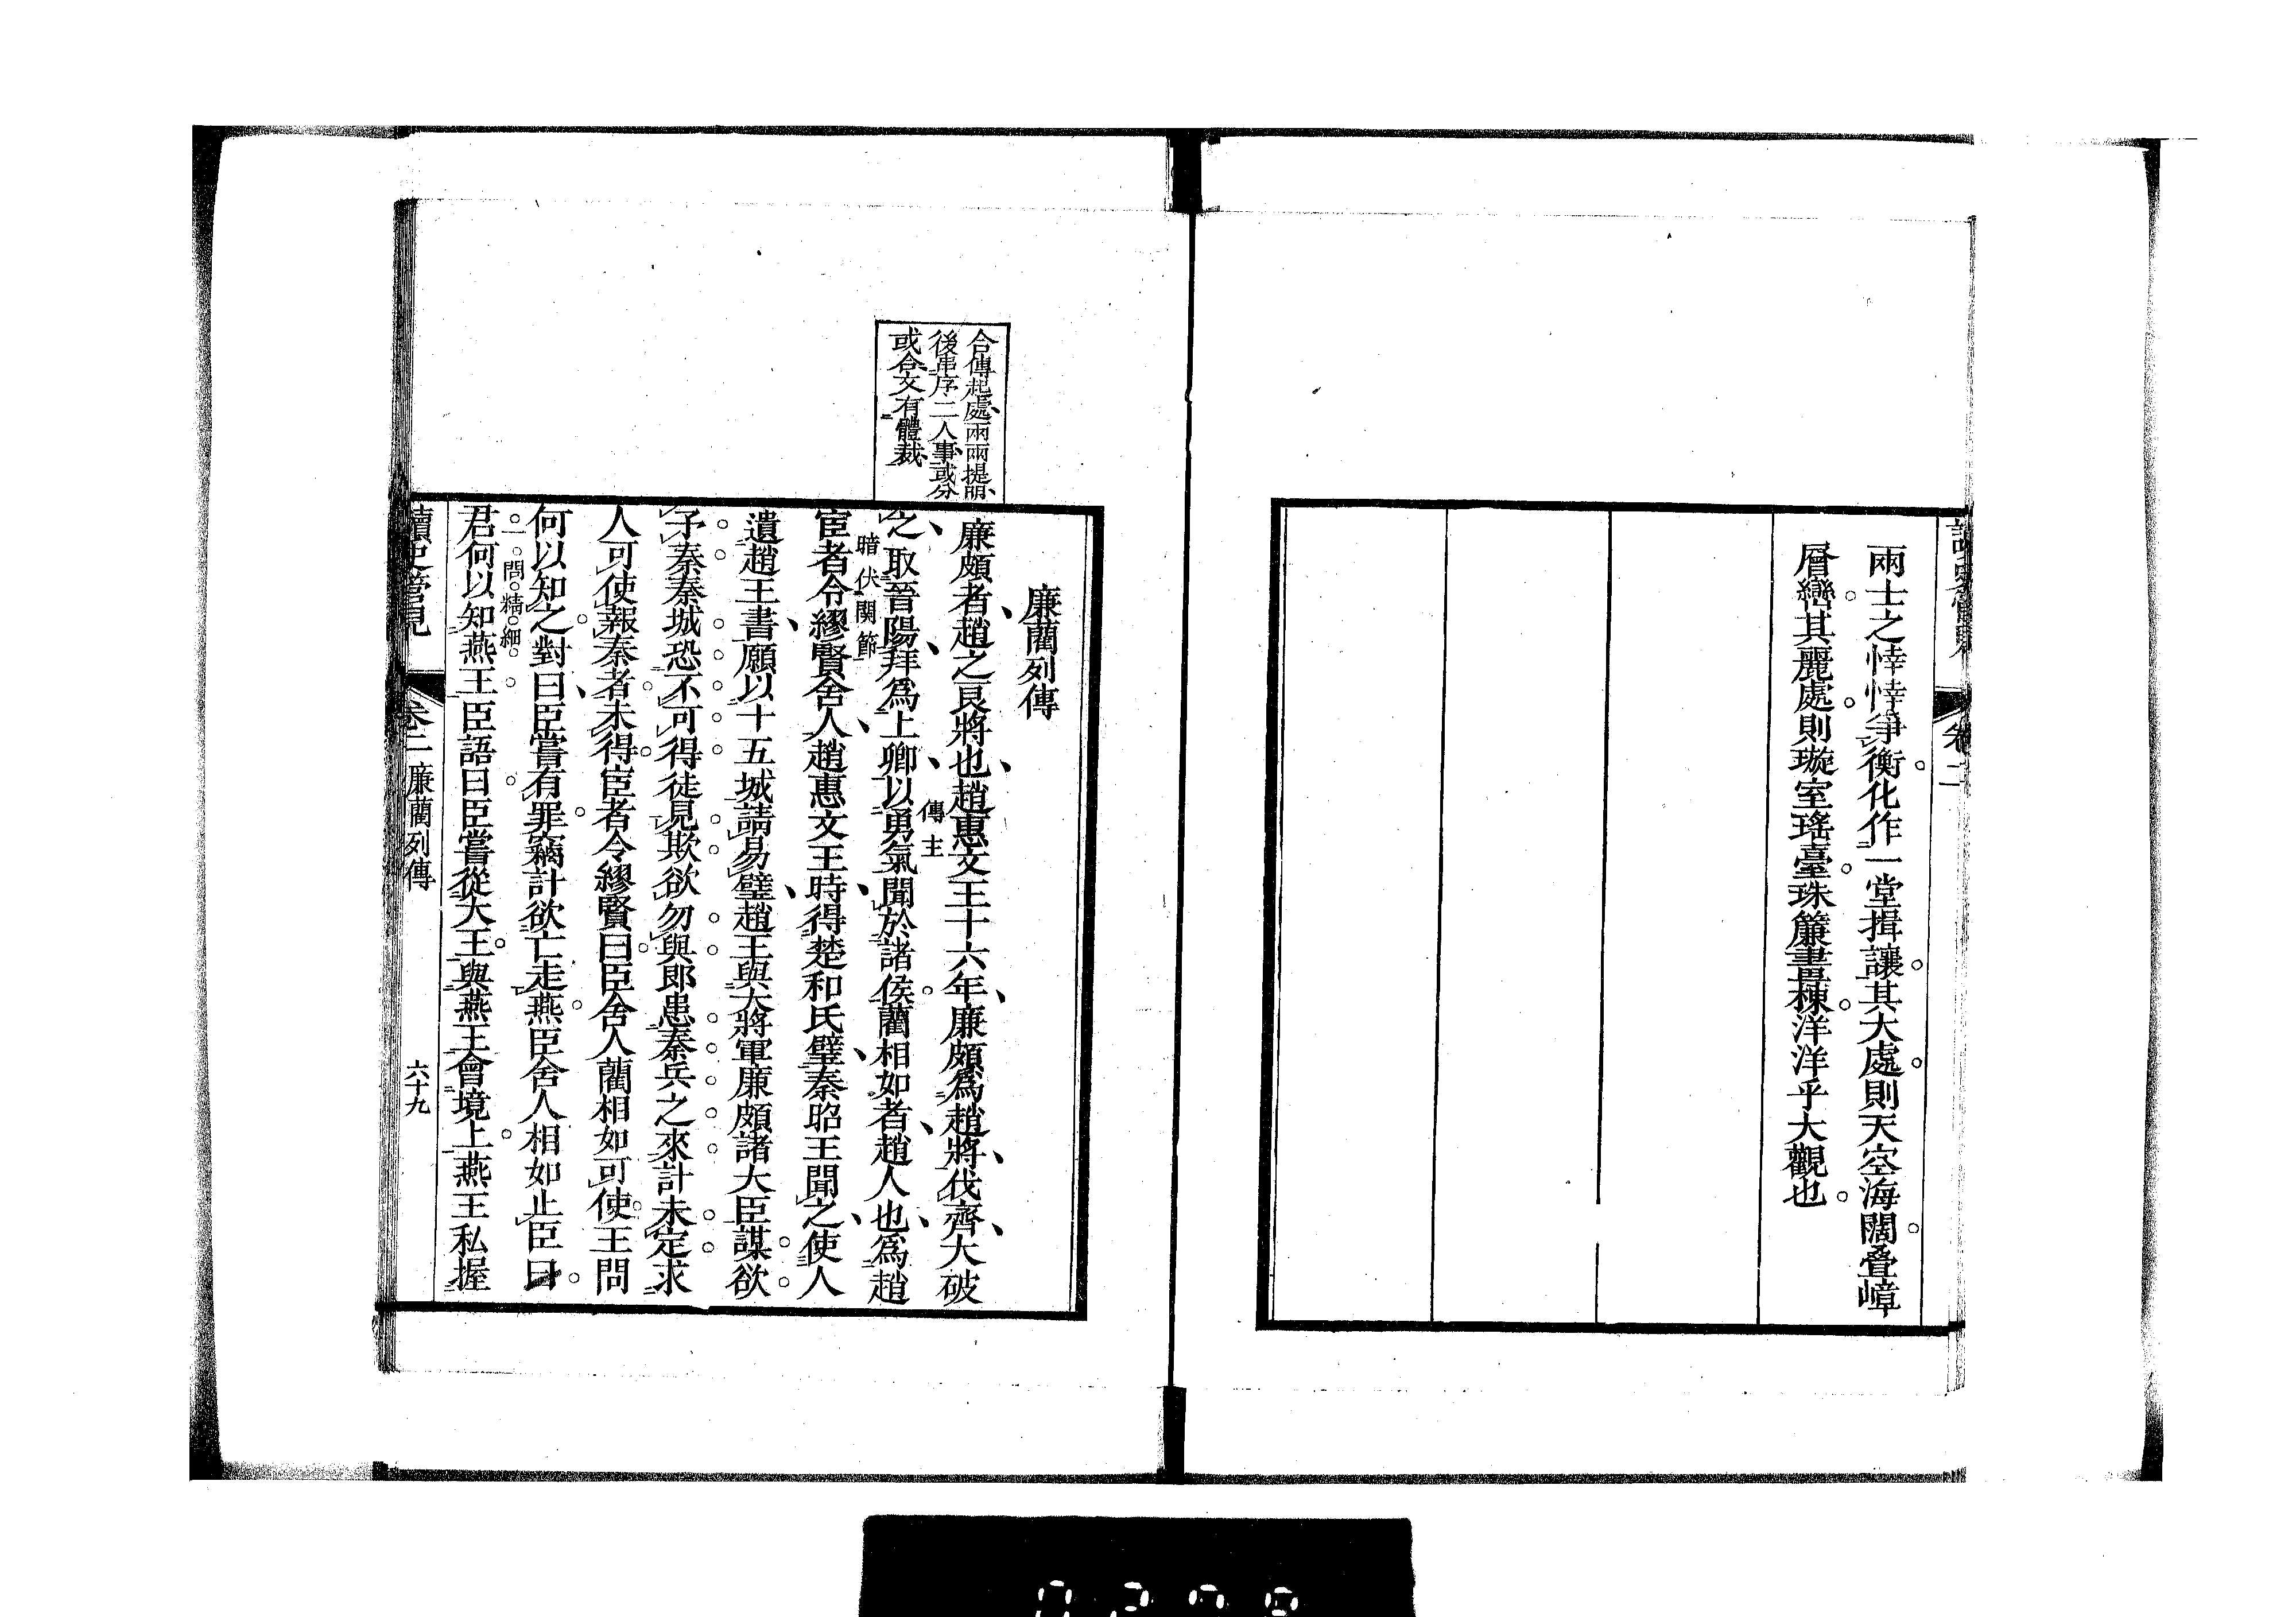 讀史管見
卷二
兩士之悻悻爭衡化作一堂揖讓其大處則天空海闊叠嶂
層巒其麗處則璇室瑤臺珠簾畫棟洋洋乎大觀也
合傳起處兩兩提明
後串序二人事或分
或合文有體裁
廉藺列傳
廉頗者趙之良將也趙惠文王十六年廉頗爲趙將伐齊大破
傳主
之取晉陽拜爲上卿以勇氣聞於諸侯藺相如者趙人也爲趙
暗伏關節
宦者令繆賢舍人趙惠文王時得楚和氏璧秦昭王聞之使人
遺趙王書願以十五城請易璧趙王與大將軍廉頗諸大臣謀欲
予秦秦城恐不可得徒見欺欲勿與即患秦兵之來計未定求
人可使報秦者未得宦者令繆賢曰臣舍人藺相如可使王問
何以知之對曰臣嘗有罪竊計欲亡走燕臣舍人相如止臣曰
一問精細
君何以知燕王臣語曰臣嘗從大王與燕王會境上燕王私握
讀史管見
卷二 廉藺列傳
六十九